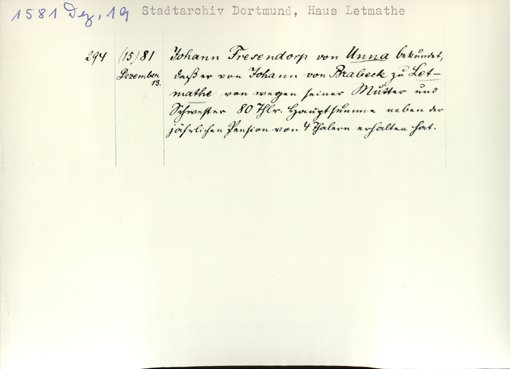 1581 Dez. 19 Stadtarchiv Dortmund, Haus Letmathe
294 (15)81 Johann Fresendorp von Unna bekundet,
Dezember daß er von Johann von Brabeck zu Let-
13. mathe von wegen seiner Mutter und
Schwester 80 Thlr. Hauptsumme neben der
jährlichen Pension von 4 Thalern erhalten hat.